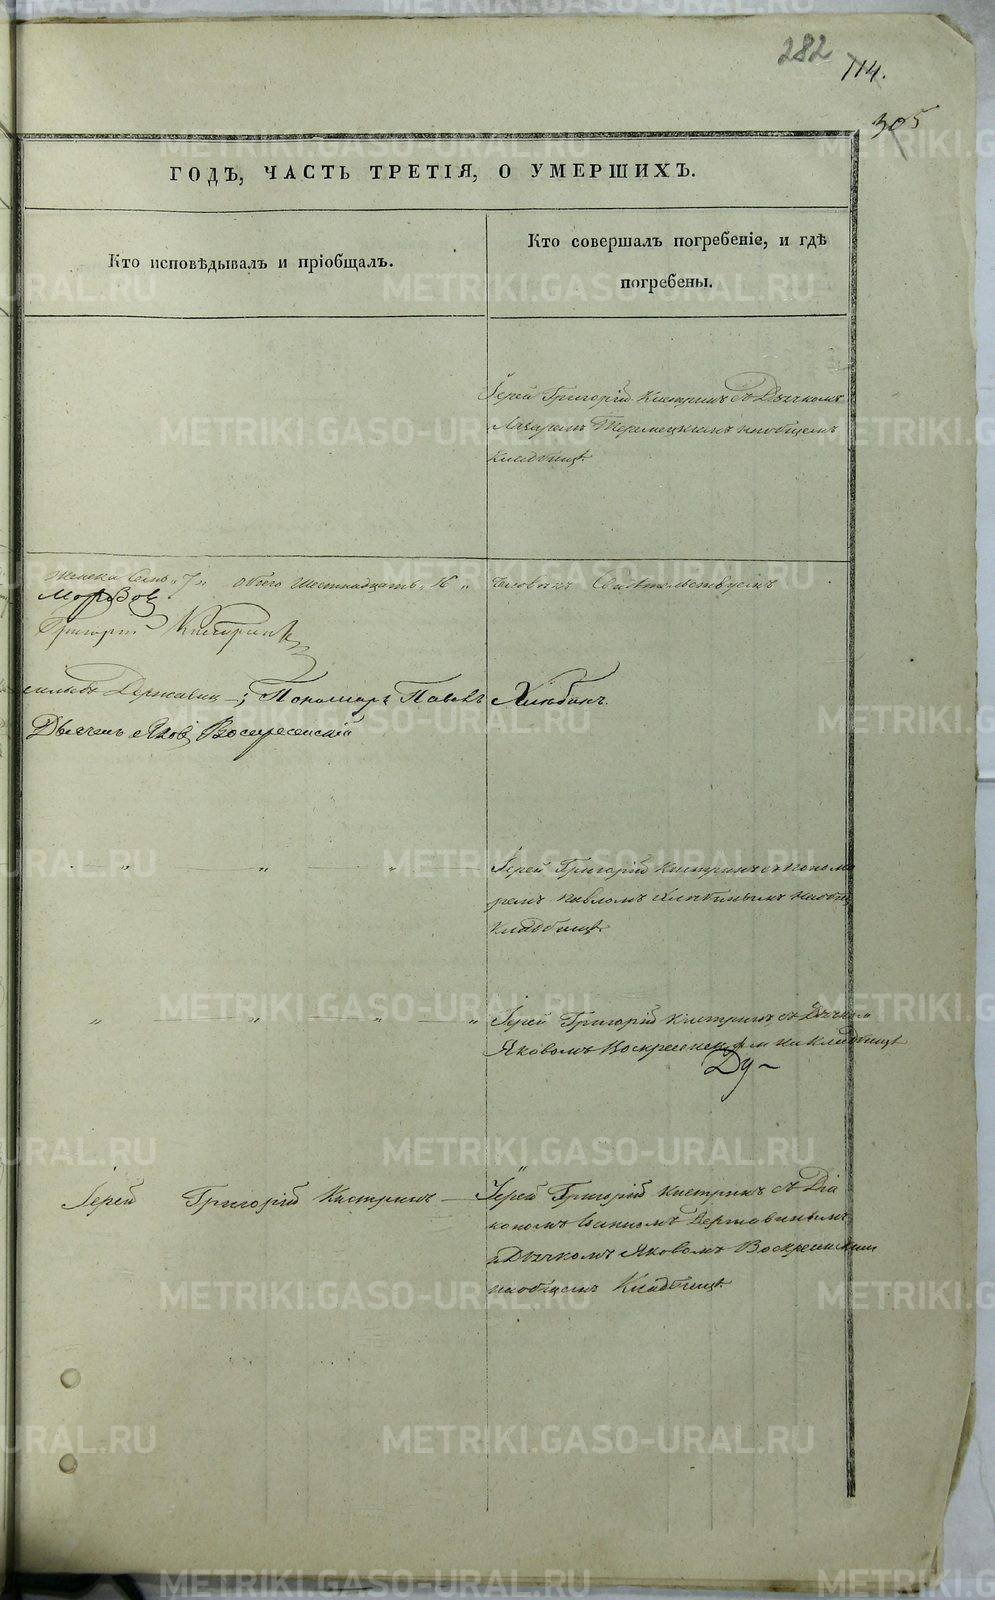 282
114.
305
ГОДЪ, ЧАСТЬ ТРЕТІЯ, О УМЕРШИХЪ.
Кто исповѣдывалъ и пріобщалъ.
Кто совершалъ погребеніе, и гдѣ
погребены.
Іерей Григорій Кистринъ съ Дьячкомъ
Лазаремъ на общемъ
кладбищѣ
женска Семь „7„ обоего шестнадцать „16„ Человѣкъ Свидѣтельствуемъ
Григорій Кистринъ
Державинъ; Пономарь Павелъ Хлѣбинъ.
Дьячекъ Яковъ Воскресенскій
Іерей Григорій Кистринъ съ Понома
ремъ Павломъ Хлѣбинымъ на общ
кладбищѣ
Іерей Григорій Кистринъ съ Дьячком
Яковомъ Воскресенскимъ на кладбищѣ
Іерей Григорій Кистринъ
Іерей Григорій Кистринъ съ Діа
кономъ Державинымъ
и Дьячкомъ Яковомъ Воскресенским
на общемъ Кладбищѣ
METRIKI.GASO-URAL.RU